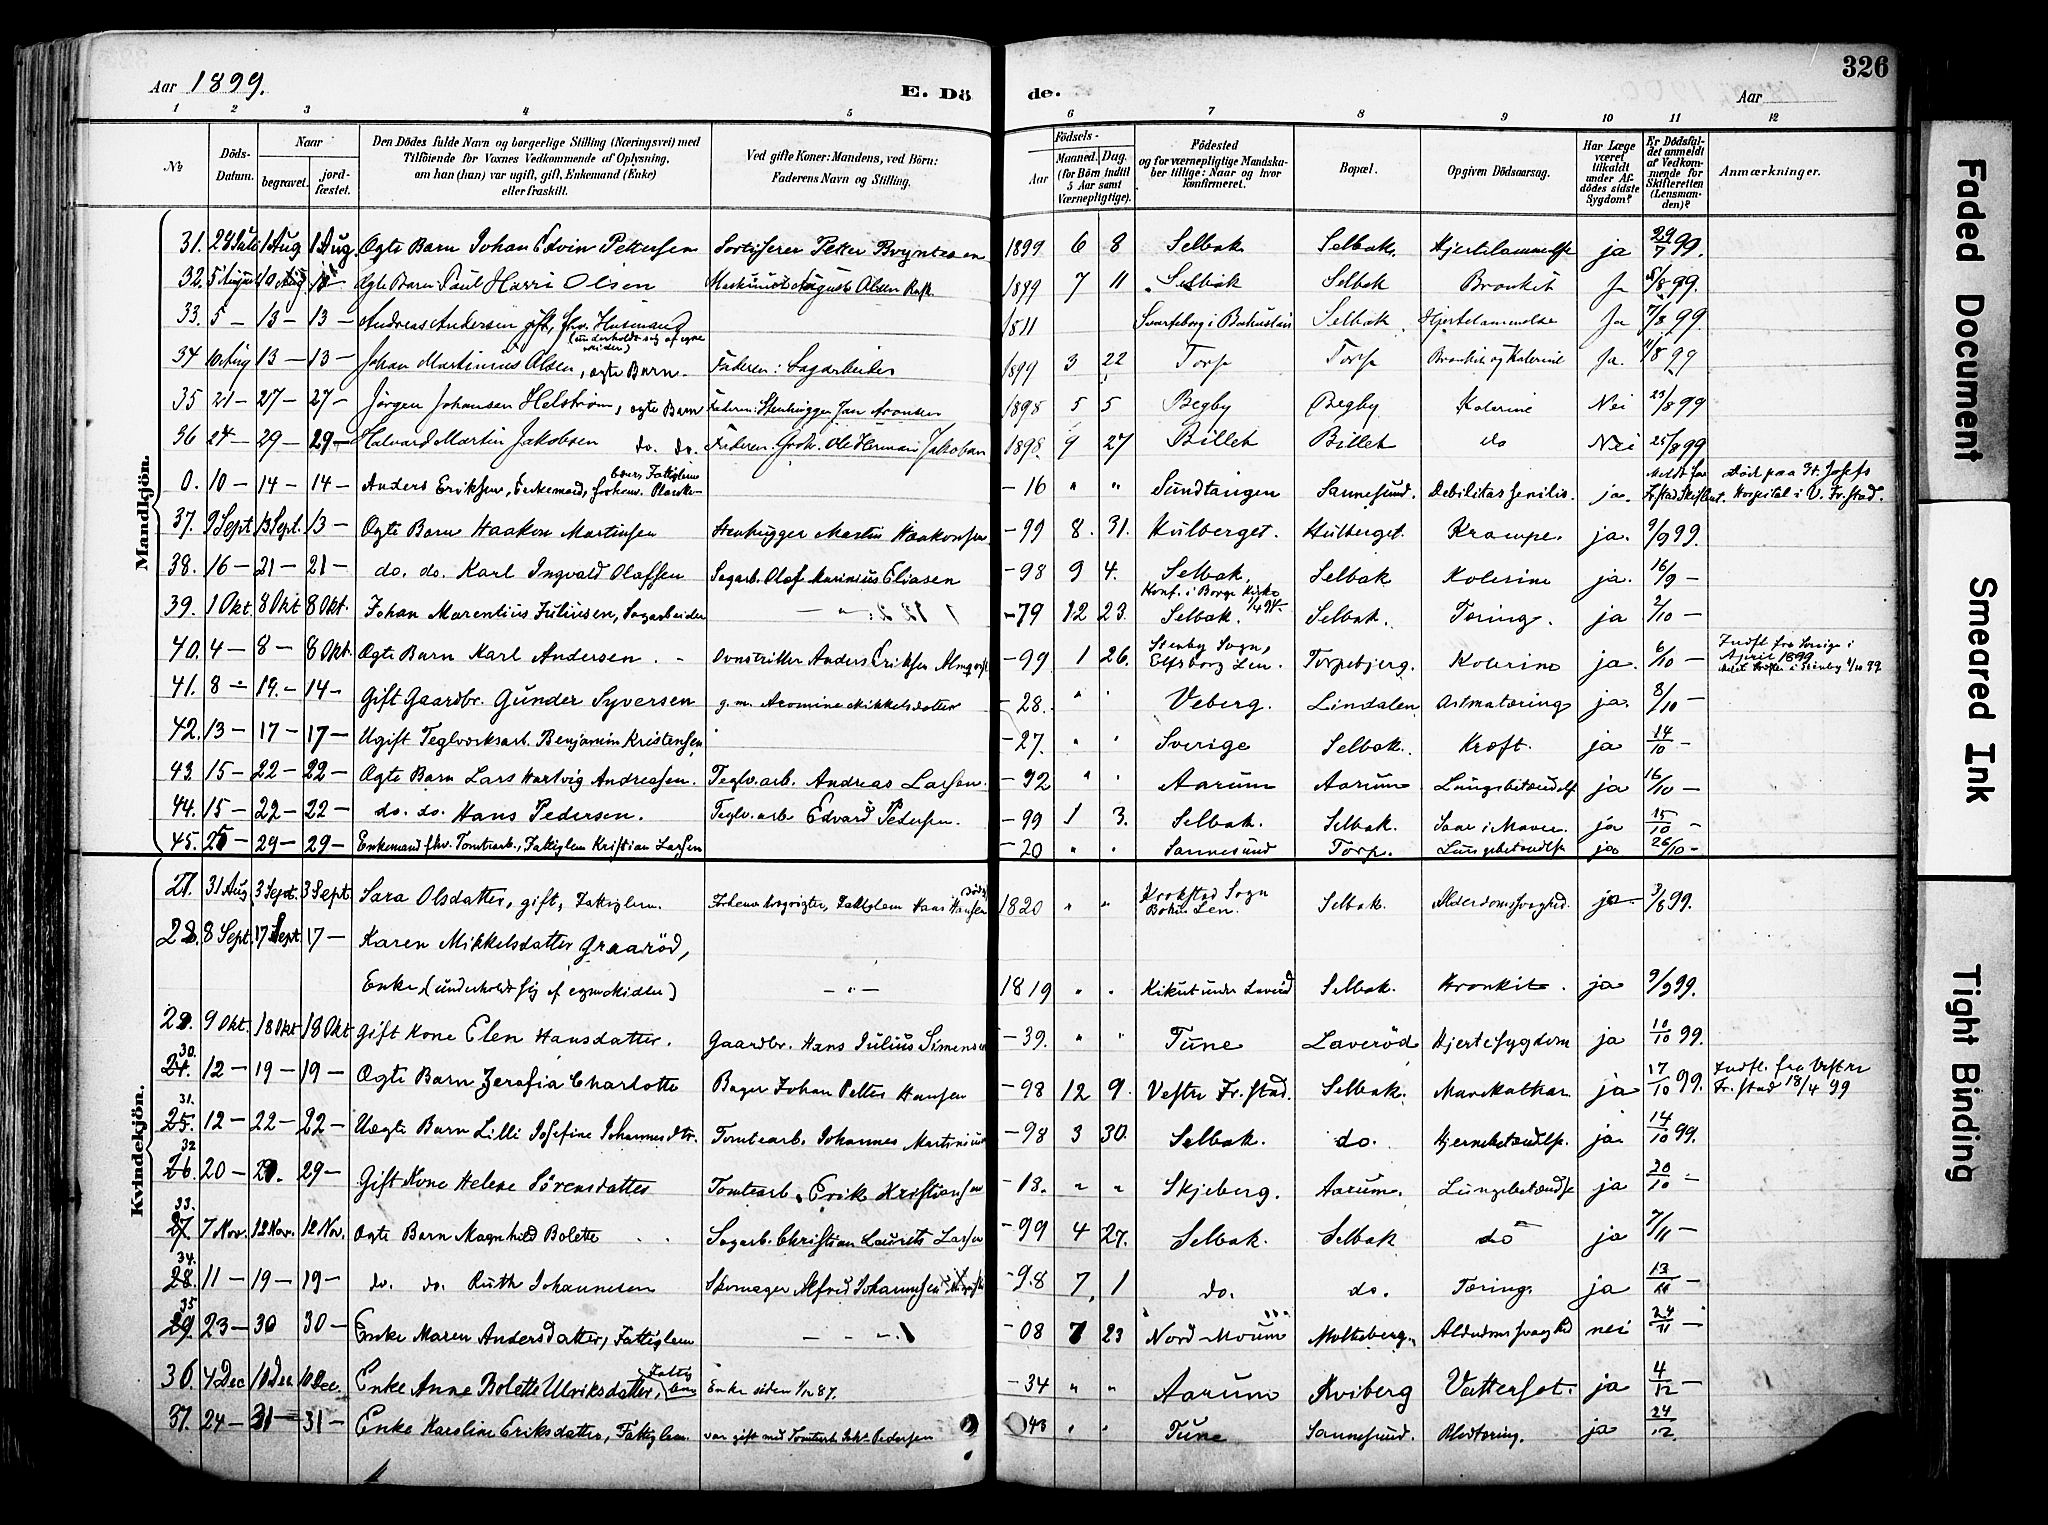 Aar 1899.
E. Dö
de.
326
Aar
1 2 3 4 5 6 7 8 9 10 11 12
No
Döds-Datum.
Naar
begravet.
jord-fæstet.
Den Dödes fulde Navn og borgerlige Stilling (Næringsvei) med
Tilföiende for Voxnes Vedkommende af Oplysning,
om han (hun) var ugift, gift, Enkemand (Enke)
eller fraskilt.
Ved gifte Koner: Mandens, ved Börn:
Faderens Navn og Stilling.
Födsels-
Aar
Maaned. Dag.
(for Börn indtil
5 Aar samt
Værnepligtige).
Födested
og for værnepligtige Mandska-
ber tillige: Naar og hvor
konfirmeret.
Bopæl.
Opgiven Dödsaarsag.
Har Læge
været
tilkaldt
under Af-
dödes sidste
Sygdom?
Er Dödsfal-
det anmeldt
af Vedkom-
mende for
Skifteretten
(Lensman-
den)?
Anmærkninger.
Mandkjön.
31. 28 Juli 1 Aug 1 Aug. Ægte Barn Johan Edvin Pettersen Sortiserer Petter Bryntesen 1899 6 8 Selbak Selbak. Hjertelammelse ja 29/7 99.
32. 5 August 10 Aug 10 Ægte Barn Paul Harri Olsen Maskinist August Olsen 1899 7 11 Selbak Selbak Bronkit Ja 5/8 99.
33. 5 — 13 — 13 — Andreas Andersen gift, fhv. Husmand (underholdt sig af egne Midler) 1811 Svarteborg i Bohuslän Selbak Hjertelammelse Ja 7/8 99
34 10 Aug 13 — 13 — Johan Martinius Olsen, ægte Barn. Faderen: Sagarbeider 1899 3 22 Torp Torp Bronkit og Kolerine Ja. 11/8 99
35 21 — 27 — 27 — Jörgen Johansen Helström, ægte Barn Faderen: Stenhugger Jan 1898 5 5 Begby Begby Kolerine Nei 23/8 99
36 24 — 29 — 29 — Halvard Martin Jakobsen do. do. Faderen: Ole Herman Jakobsen 1898. 9 27 Billet Billet do Nei 25/8 99
0. 10 — 14 — 14 — Anders Eriksen, Enkemand, forhenv. Planke-bærer, Fattiglem — 16 " " Sundtangen Sannesund. Debilitas senilis. ja. Meldt for Fr.stad Skifteret. Död paa St. Josefs Hospital i V. Fr.stad.
37. 9 Sept. 13 Sept. 13 — Ægte Barn Haakon Martinsen Stenhugger Martin Haakonsen — 99 8. 31. Hulberget. Hulberget. Krampe. ja. 9/9 99.
38. 16 — 21 — 21 — do. do. Karl Ingvald Olaffen Sagarb. Olaf Marinius Eliasen — 98 9 4. Selbak. Selbak Kolerine ja. 16/9 —
39. 1 Okt. 8 Okt 8 Okt. Johan Marentius Juliusen, Sagarbeider — " — — 79 12 23. Konf. i Borge Kirke Selbak. Selbak. Tæring. ja 2/10 —
40. 4 — 8 — 8 Okt. Ægte Barn Karl Andersen. Ovnstiller Anders Eriksen Almqvist — 99 1 26. Stenby Sogn, Elfsborg Len. Torpebjerg. Kolerine ja. 6/10 — Indfl. fra Sverige i April 1899
41. 8 — 19. — 14 — Gift Gaardbr. Gunder Syversen g. m. Aromine Mikkelsdatter — 28. " " Veberg. Lindalen Astmatæring ja. 8/10 —
42. 13 — 17 — 17 — Ugift Teglverksarb. Benjamin Kristensen — 27. " " Sverige Selbak. Kræft. ja 14/10 —
43. 15 — 22 — 22 — Ægte Barn Lars Hartvig Andreasen. Teglv.arb. Andreas Larsen. — 92 " " Aarum Aarum Lungebetændelse ja 16/10 —
44. 15 — 22 — 22 — do. do. Hans Pedersen. Teglv.arb Edvard Pedersen. — 99 1 3. Selbak. Selbak. Saar i Maven. ja 15/10 —
45. 25 — 29 — 29 — Enkemand fhv. Tomtearb., Fattiglem Kristian Larsen — 20 " " Sannesund Torp. Lungebetændelse ja 26/10 —
Kvindekjön.
27. 31 Aug 3 Sept. 3 Sept. Sara Olsdatter, gift, Fattiglem. Fattiglem Hans Hansen 1820 " " Krokstad Sogn Bohus Len. Selbak. Alderdomssvaghed. ja 3/8 99.
28. 8 Sept. 17 Sept. 17 — Karen Mikkelsdatter Graaröd,
Enke, (underholdt sig af egne Midler) — " — 1819 " " Kikut under Laveröd Selbak. Bronkit. ja 9/9 99.
29. 9 Okt. 18 Okt 18 Okt Gift Kone Elen Hansdatter. Gaardbr. Hans Julius Simensen — 39. " " Tune Laveröd Hjertesygdom ja 10/10 99.
30. 24. 12 — 19 — 19 — Ægte Barn Zerafia Charlotte Bager Johan Petter Hansen — 98 12 9. Vestre Fr.stad. Selbak. Mavekathar ja 17/10 99. Indfl. fra Vestre Fr.stad 18/4 99
31. 25. 12 — 22 — 22 — Uægte Barn Lilli Josefine Johannesdtr. Tomtearb. Johannes Martinius — 98 3 30. Selbak. do. Hjernebetændelse. ja 14/10 99.
32 26. 20 — 29. 29 — Gift Kone Helene Sörensdatter Tomtearb. Erik Kristiansen — 18. " " Skjeberg. Aarum. Lungebetændelse ja 20/10 —
33. 27. 7 Nov. 12 Nov. 12 Nov. Ægte Barn Magnhild Bolette Sagarb. Christian Laurits Larsen — 99 4 27. Selbak. Selbak do ja 7/11 —
34. 28. 11 — 19 — 19 — do. do. Ruth Johannesen Skomager Alfred Johannesen — 98 7 1 do. do. Tæring. ja 13/11 —
35 29. 23 — 30 30 — Enke Maren Andersdatter, Fattiglem — " — — 08 7 23 Nord-Moum Molteberg. Alderdomssvaghed nei 24/11 —
36. 4 Dec 10 Dec 10 Dec. Enke Anne Bolette Ulriksdatter, Fattiglem Enke siden 1/12 87. — 34 " " Aarum Kviberg Vattersot. ja 4/12 —
37. 24 — 31 — 31 — Enke Karoline Eriksdatter, Fattiglem. var gift med Tomtearb. Pedersen 43 " " Tune Sannesund. Blodtæring. ja 24/12.
Faded Document
Smeared Ink
Tight Binding